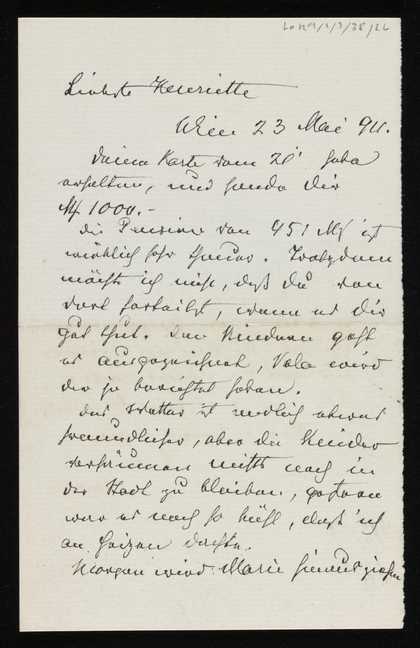 Liebste Henriette
Wien 23 Mai 94.
Deine Karte vom 20' habe
erhalten, und sende Dir
M 1000.-
die Pension von 451 M ist
wirklich sehr theuer. Trotzdem
möchte ich nicht, daß Du von
dort forteilst, wenn es Dir
gut thut. Den Kindern geht
es ausgezeichnet, wird
Dir ja berichtet haben.
Das Wetter ist endlich etwas
freundlicher, aber die Kinder
versäumen nichts noch in
der Stadt zu bleiben, gestern
war es noch so kühl, daß ich
an heizen dachte.
Morgen wird Marie hinausziehen